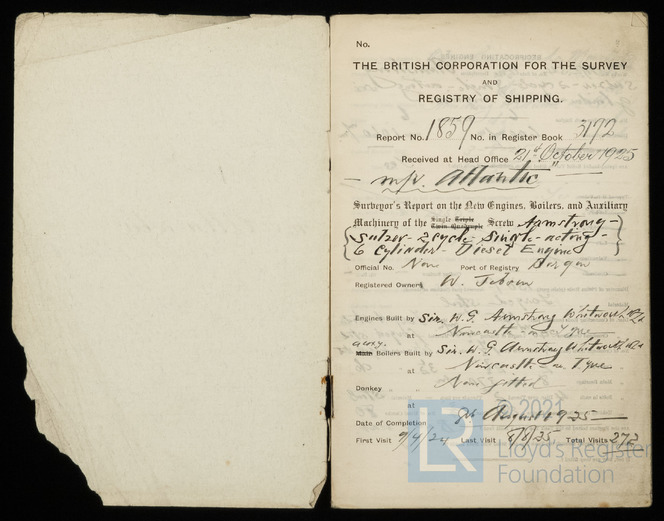 No.
THE BRITISH CORPORATION FOR THE SURVEY
AND
REGISTRY OF SHIPPING.
Report No. 1859 No. in Register Book 3192
Received at Head Office 21st October 1925
m/v. "Atlantic"
Surveyor's Report on the New Engines, Boilers, and Auxiliary
Machinery of the Single Triple Twin Quadruple Screw Armstrong-
Sulzer - 2 cycle - Single-acting -
6 Cylinder - Diesel Engine
Official No. Port of Registry Bergen
Registered Owners W.
Engines Built by Sir. W. G. Armstrong Whitworth
at Newcastle-on-Tyne
Boilers Built by Sir. W. G. Armstrong Whitworth
at Newcastle-on-Tyne
Donkey None fitted
at
Date of Completion 8th August 1925
First Visit 9/4/24 Last Visit 8/8/25 Total Visits 272
© 2021
LR
Lloyd's Register
Foundation